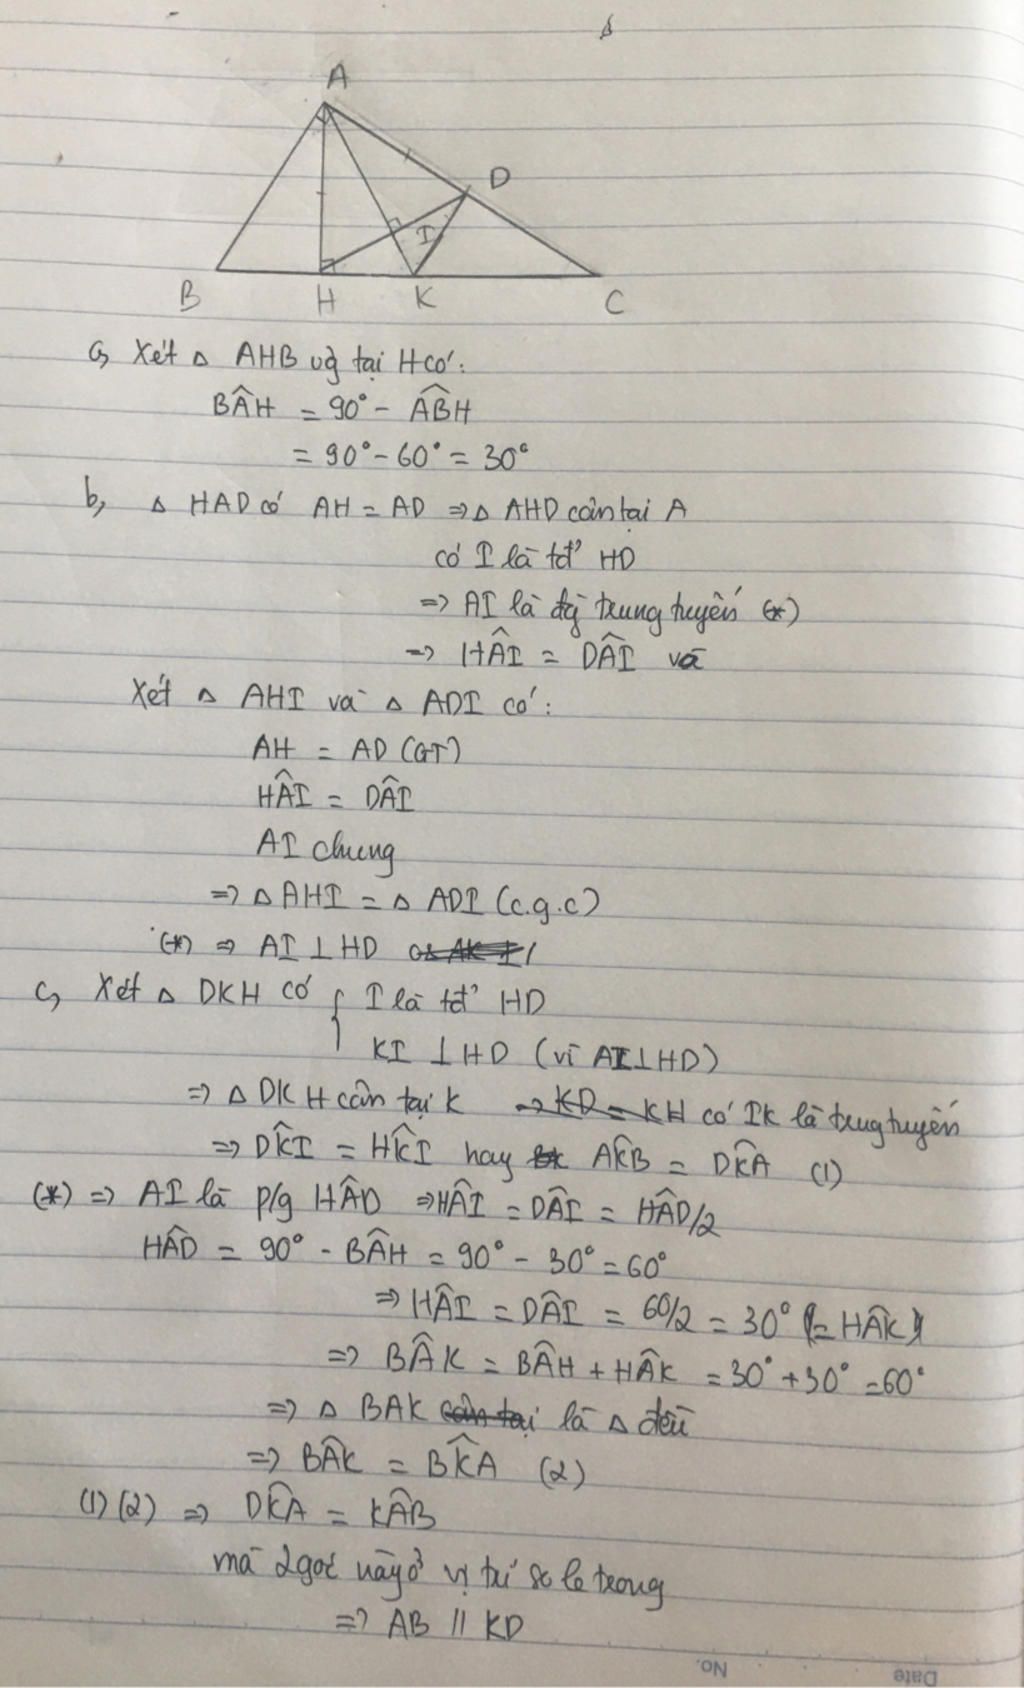 A
D
I
B H K C
a, Xét △ AHB vg tại H có:
BÂH = 90° - AB̂H
= 90° - 60° = 30°
b, △ HAD có AH = AD => △ AHD cân tại A
có I là tđ' HD
=> AI là đg trung tuyến (*)
=> HÂI = DÂI và
Xét △ AHI và △ ADI có:
AH = AD (GT)
HÂI = DÂI
AI chung
=> △ AHI = △ ADI (c.g.c)
(*) => AI ⊥ HD
c, Xét △ DKH có { I là tđ' HD
KI ⊥ HD (vì AI ⊥ HD)
=> △ DKH cân tại K => KD = KH có IK là trung tuyến
=> DK̂I = HK̂I hay AK̂B = DK̂A (1)
(*) => AI là p/g HÂD => HÂI = DÂI = HÂD/2
HÂD = 90° - BÂH = 90° - 30° = 60°
=> HÂI = DÂI = 60/2 = 30° (= HÂK)
=> BÂK = BÂH + HÂK = 30° + 30° = 60°
=> △ BAK cân tại là △ đều
=> BÂK = BK̂A (2)
(1) (2) => DK̂A = KÂB
mà 2 góc này ở vị trí so le trong
=> AB // KD
No.
Date